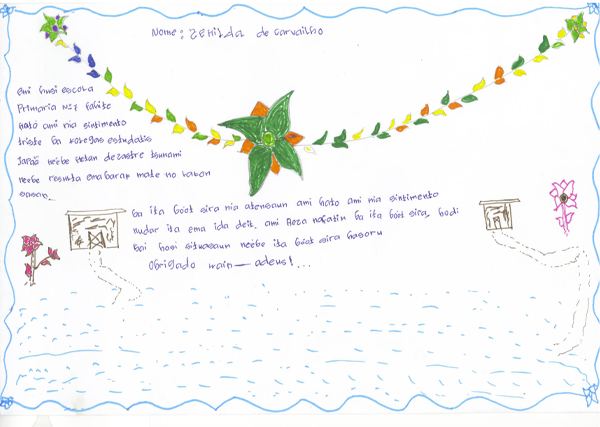 Nome: ZENILDA de Carvailho
Ami husi escola
Primaria Nº1 Fatite
hato ami nia sintimento
triste ba kolegas estudatis
Japaõ nebe hetan dezastre tsunami
nebe resulta ema barak mate no lakon
sasan.
Ba ita boot sira nia atensaun ami hato ami nia sintimento
nudar ita ema ida deit, ami Reza nafatin ba ita boot sira, hodi
bai hosi situasaun nebe ita boot sira hasoru
Obrigado wain — adeus!...